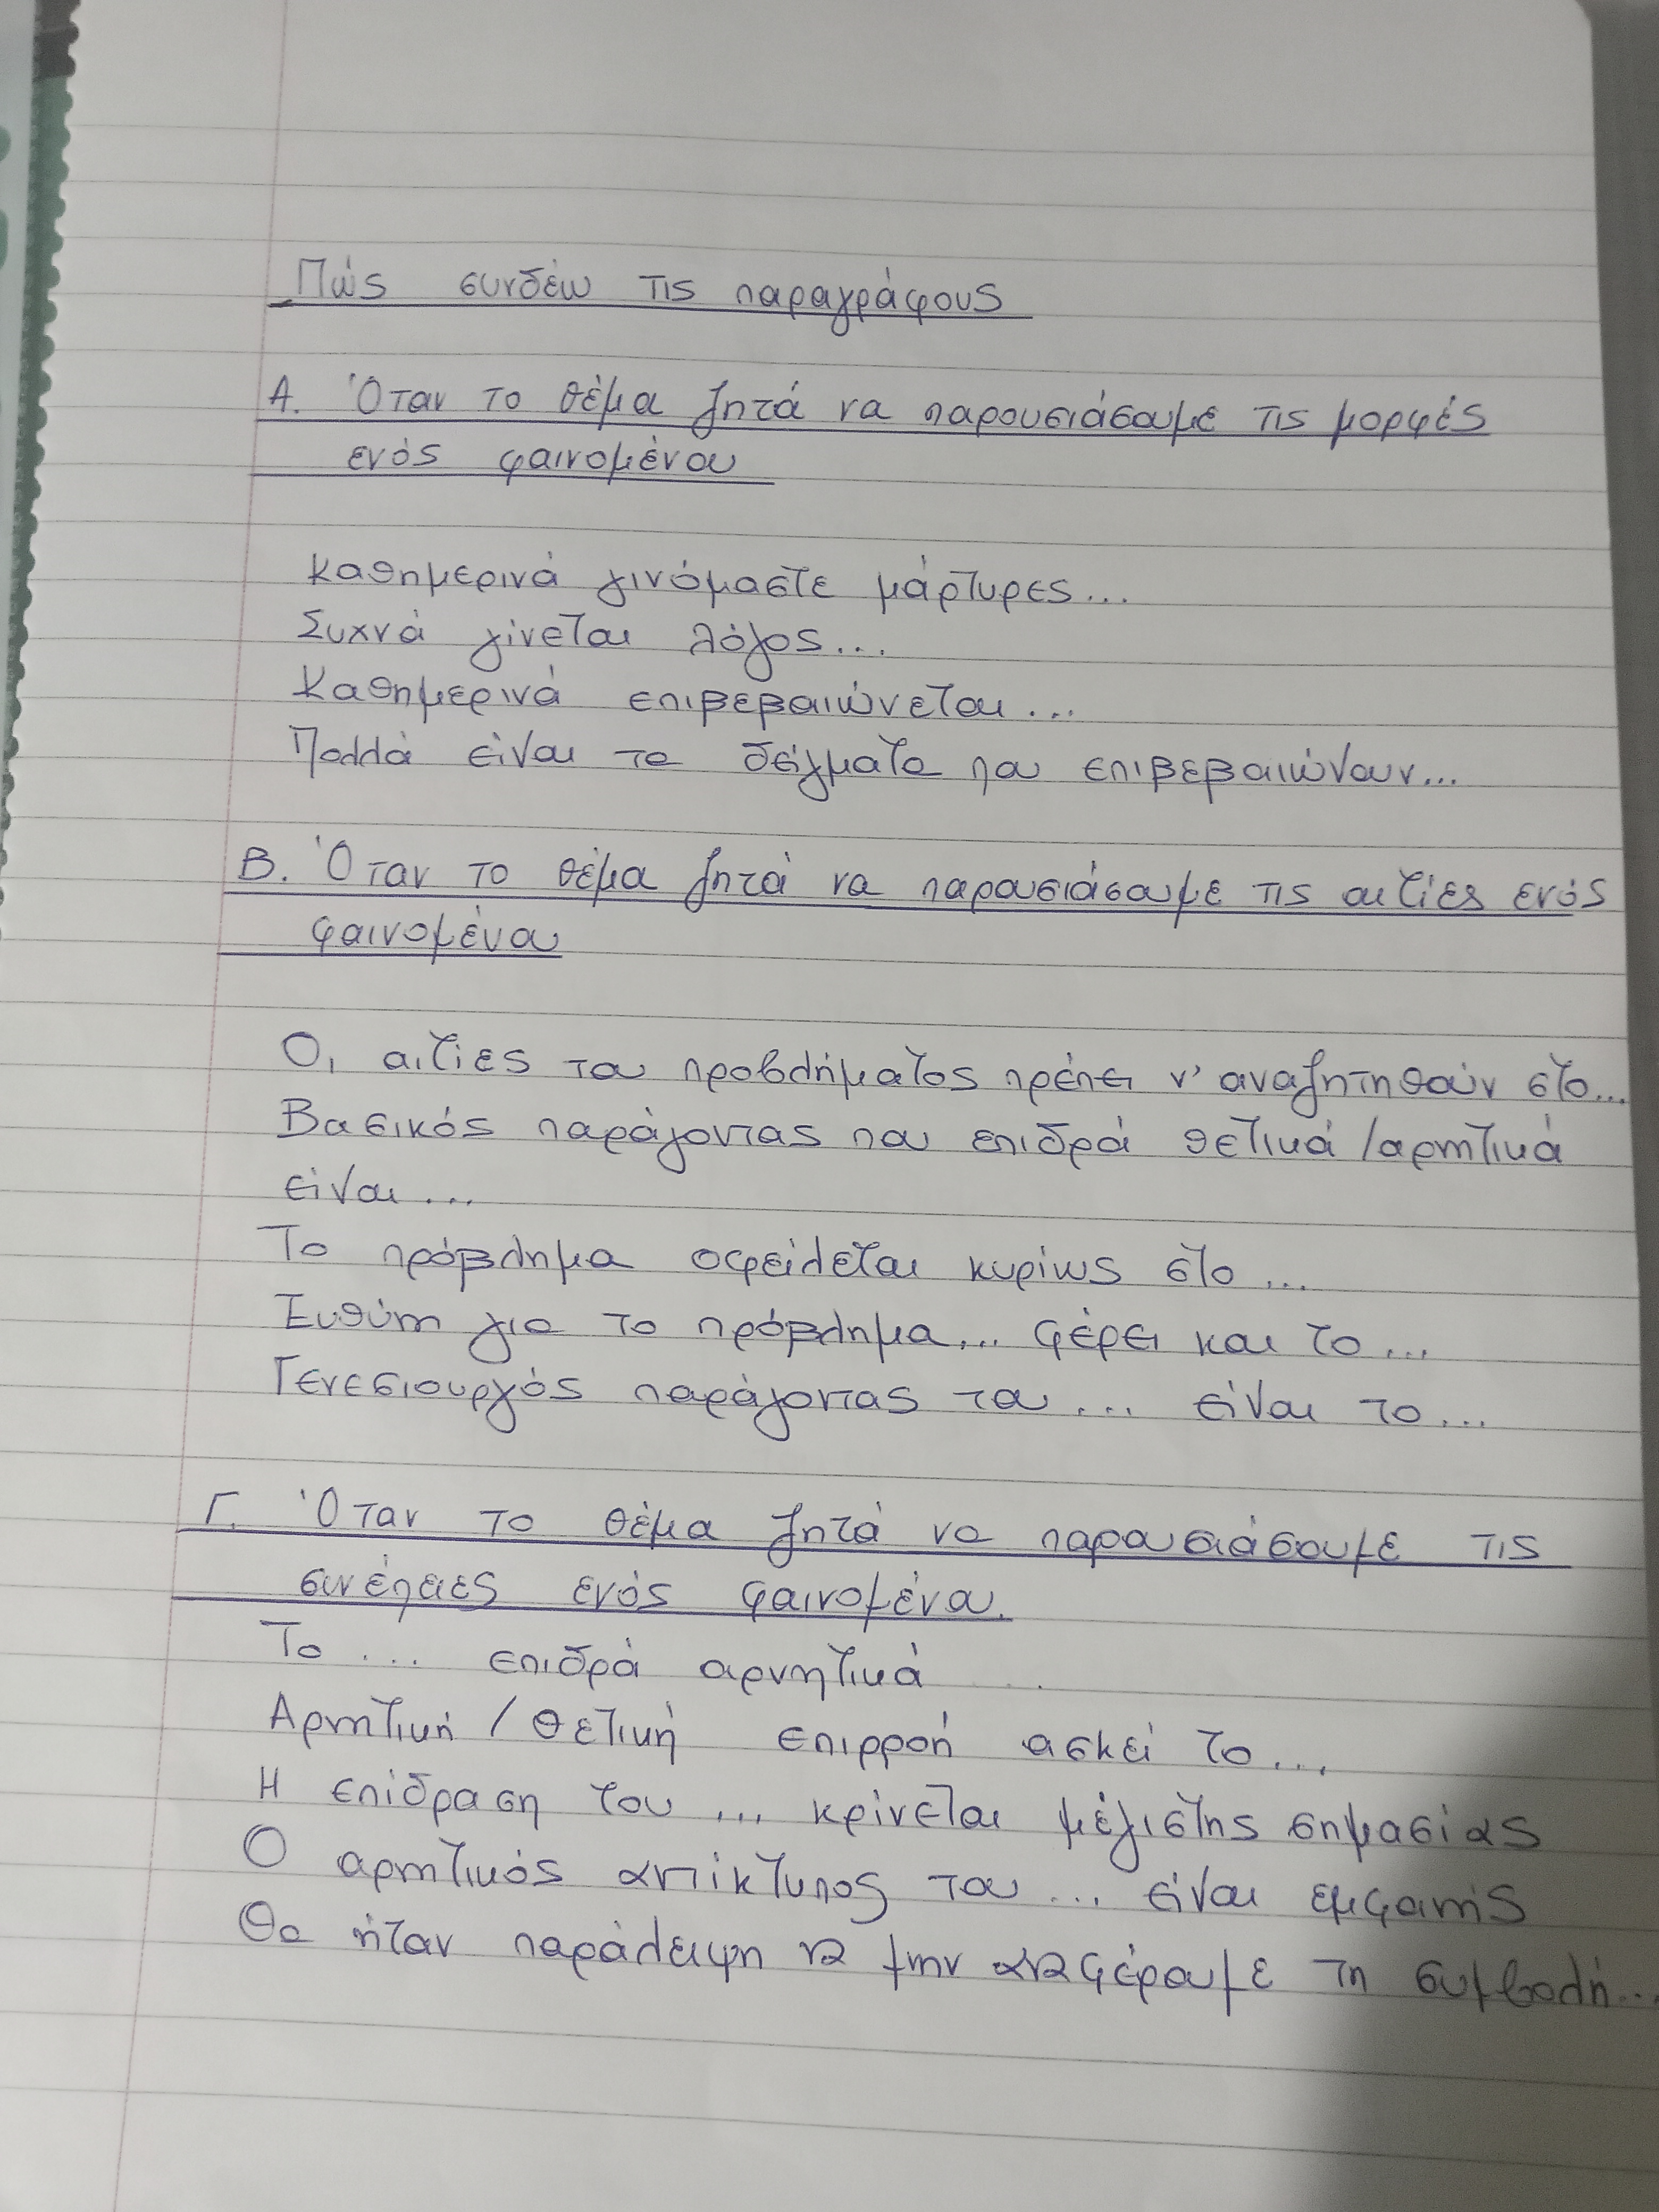 Πώς συνδέω τις παραγράφους
Α. Όταν το θέμα ζητά να παρουσιάσουμε τις μορφές
ενός φαινομένου
Καθημερινά γινόμαστε μάρτυρες...
Συχνά γίνεται λόγος...
Καθημερινά επιβεβαιώνεται...
Πολλά είναι τα δείγματα που επιβεβαιώνουν...
Β. Όταν το θέμα ζητά να παρουσιάσουμε τις αιτίες ενός
φαινομένου
Οι αιτίες του προβλήματος πρέπει ν' αναζητηθούν στο...
Βασικός παράγοντας που επιδρά θετικά/αρνητικά
είναι...
Το πρόβλημα οφείλεται κυρίως στο...
Ευθύνη για το πρόβλημα... φέρει και το...
Γενεσιουργός παράγοντας του... είναι το...
Γ. Όταν το θέμα ζητά να παρουσιάσουμε τις
συνέπειες ενός φαινομένου.
Το ... επιδρά αρνητικά
Αρνητική / θετική επιρροή ασκεί το...
Η επίδραση του ... κρίνεται μέγιστης σημασίας
Ο αρνητικός αντίκτυπος του ... είναι εμφανής
Θα ήταν παράλειψη να μην αναφέρουμε τη συμβολή...